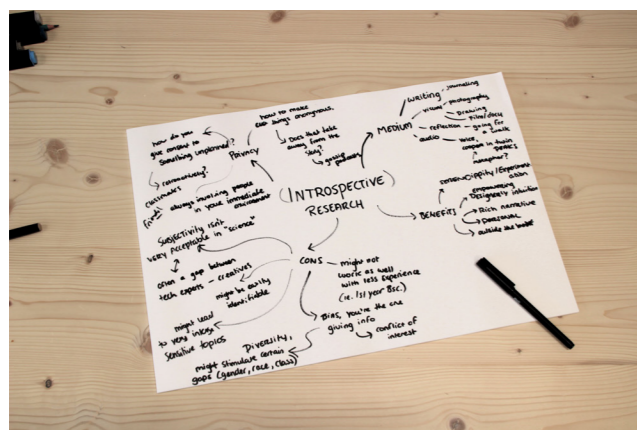 INTROSPECTIVE
RESEARCH
MEDIUM
writing
journaling
visual
photography
Drawing
Film/docu
reflection
going for
a walk
audio
voice,
cooper in twin
peaks
BENEFITS
empowering
Designerly intuition
Rich narrative
personal
outside the
CONS
might not
work as well
with less experience
(ie. 1st year Bsc.)
Bias, you're the one
giving info
conflict of
interest
Diversity,
might stimulate certain
gaps (gender, race, class)
might lead
to very intense
sensitive topics
might be easily
identifiable
often a gap between
tech experts – creatives
SUBJECTIVITY ISN'T
very acceptable in "science"
Privacy
how to make
things anonymous.
Does that take
away from the
story?
gossip
how do you
give consent to
something unplanned?
retroactively?
classmates
friends
always involving people
in your immediate
environment